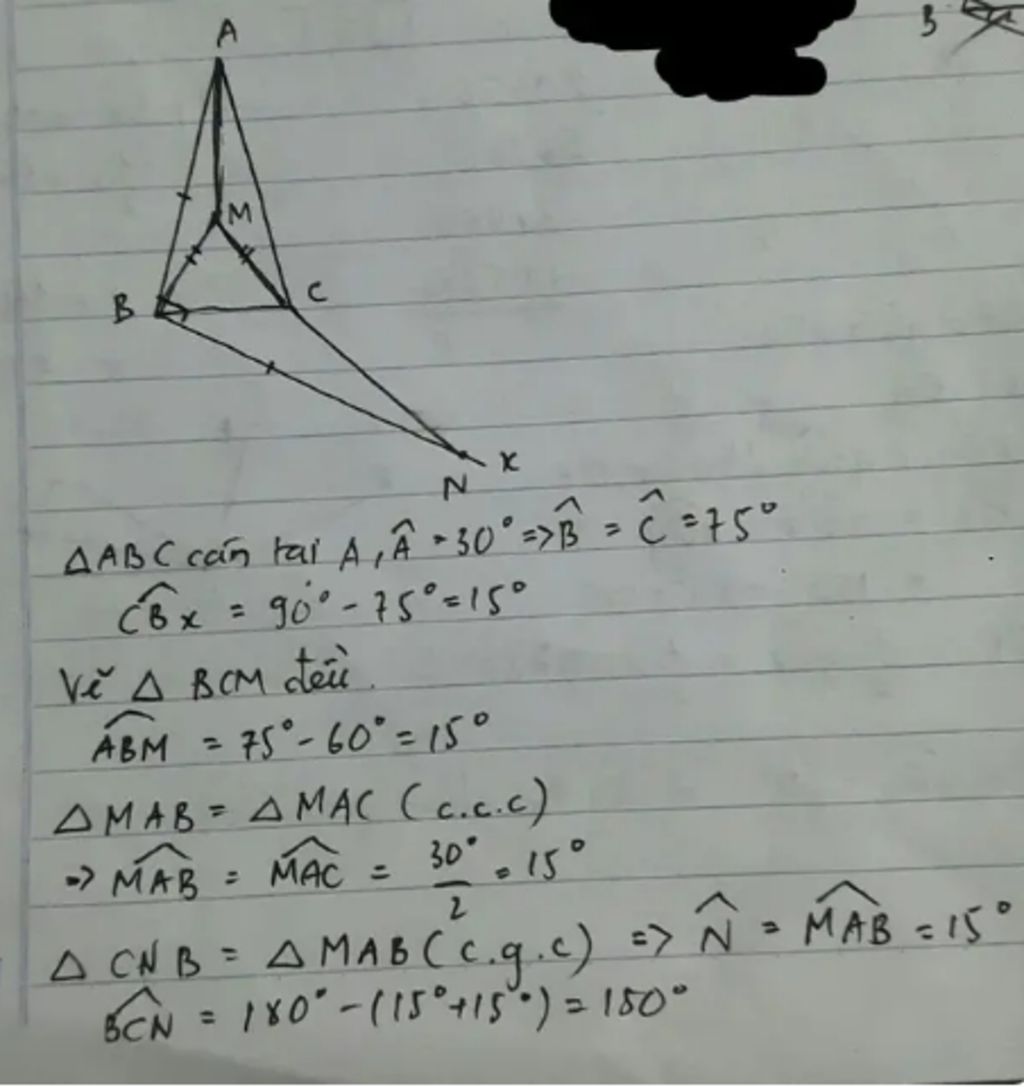 B
A
M
B
C
x
N
ΔABC cân tại A, Â = 30° => B̂ = Ĉ = 75°
CB̂x = 90° - 75° = 15°
Vẽ Δ BCM đều.
AB̂M = 75° - 60° = 15°
Δ MAB = Δ MAC (c.c.c)
=> MÂB = MÂC = 30°/2 = 15°
Δ CNB = Δ MAB (c.g.c) => N̂ = MÂB = 15°
BĈN = 180° - (15° + 15°) = 150°